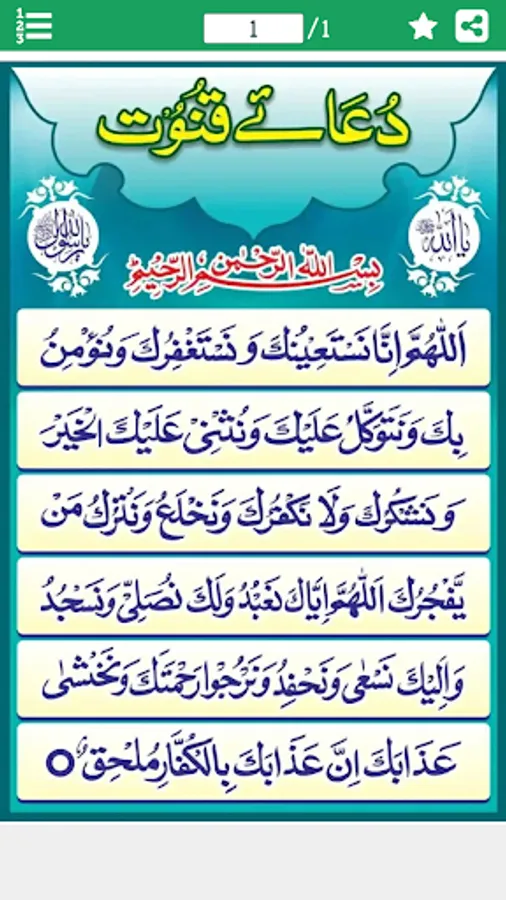 1
2
3
1 /1
دُعَائے قُنُوْت
یَا اَللہُ
یَارَسُوْلَ اللہ
بِسْمِ اللّٰهِ الرَّحْمٰنِ الرَّحِيْمِ
اَللّٰهُمَّ اِنَّا نَسْتَعِيْنُكَ وَ نَسْتَغْفِرُكَ وَنُؤْمِنُ
بِكَ وَنَتَوَكَّلُ عَلَيْكَ وَنُثْنِىْ عَلَيْكَ الْخَيْرَ
وَنَشْكُرُكَ وَلَا نَكْفُرُكَ وَنَخْلَعُ وَنَتْرُكُ مَنْ
يَّفْجُرُكَ اَللّٰهُمَّ اِيَّاكَ نَعْبُدُ وَلَكَ نُصَلِّىْ وَنَسْجُدُ
وَاِلَيْكَ نَسْعٰى وَنَحْفِدُ وَنَرْجُوْا رَحْمَتَكَ وَنَخْشٰى
عَذَابَكَ اِنَّ عَذَابَكَ بِالْكُفَّارِ مُلْحِقٌ